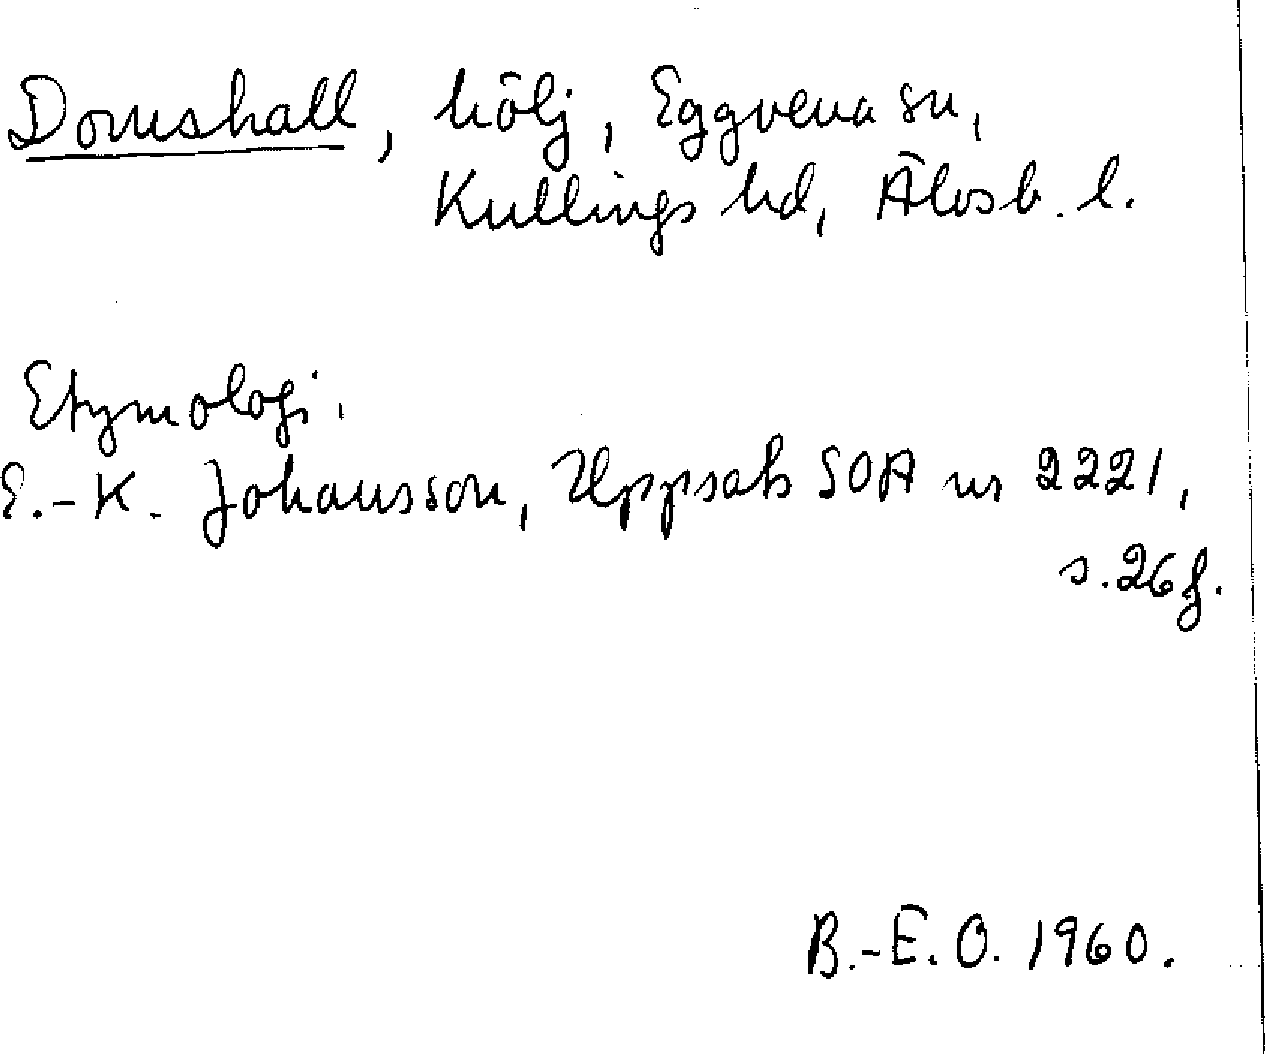 Domshall, hölj, Eggvena sn,
Kullings hd, Älvsb. l.
Etymologi.
E.-K. Johansson, Uppsats SOA nr 2221,
s. 26 f.
B.-E. O. 1960.